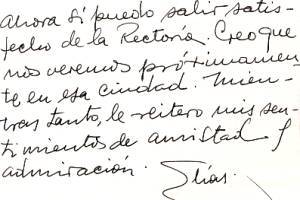 Ahora sí puedo salir satis-
fecho de la Rectoría. Creo que
nos veremos próximamen-
te en esa ciudad. Mien-
tras tanto, le reitero mis sen-
timientos de amistad y
admiración.
Elías.